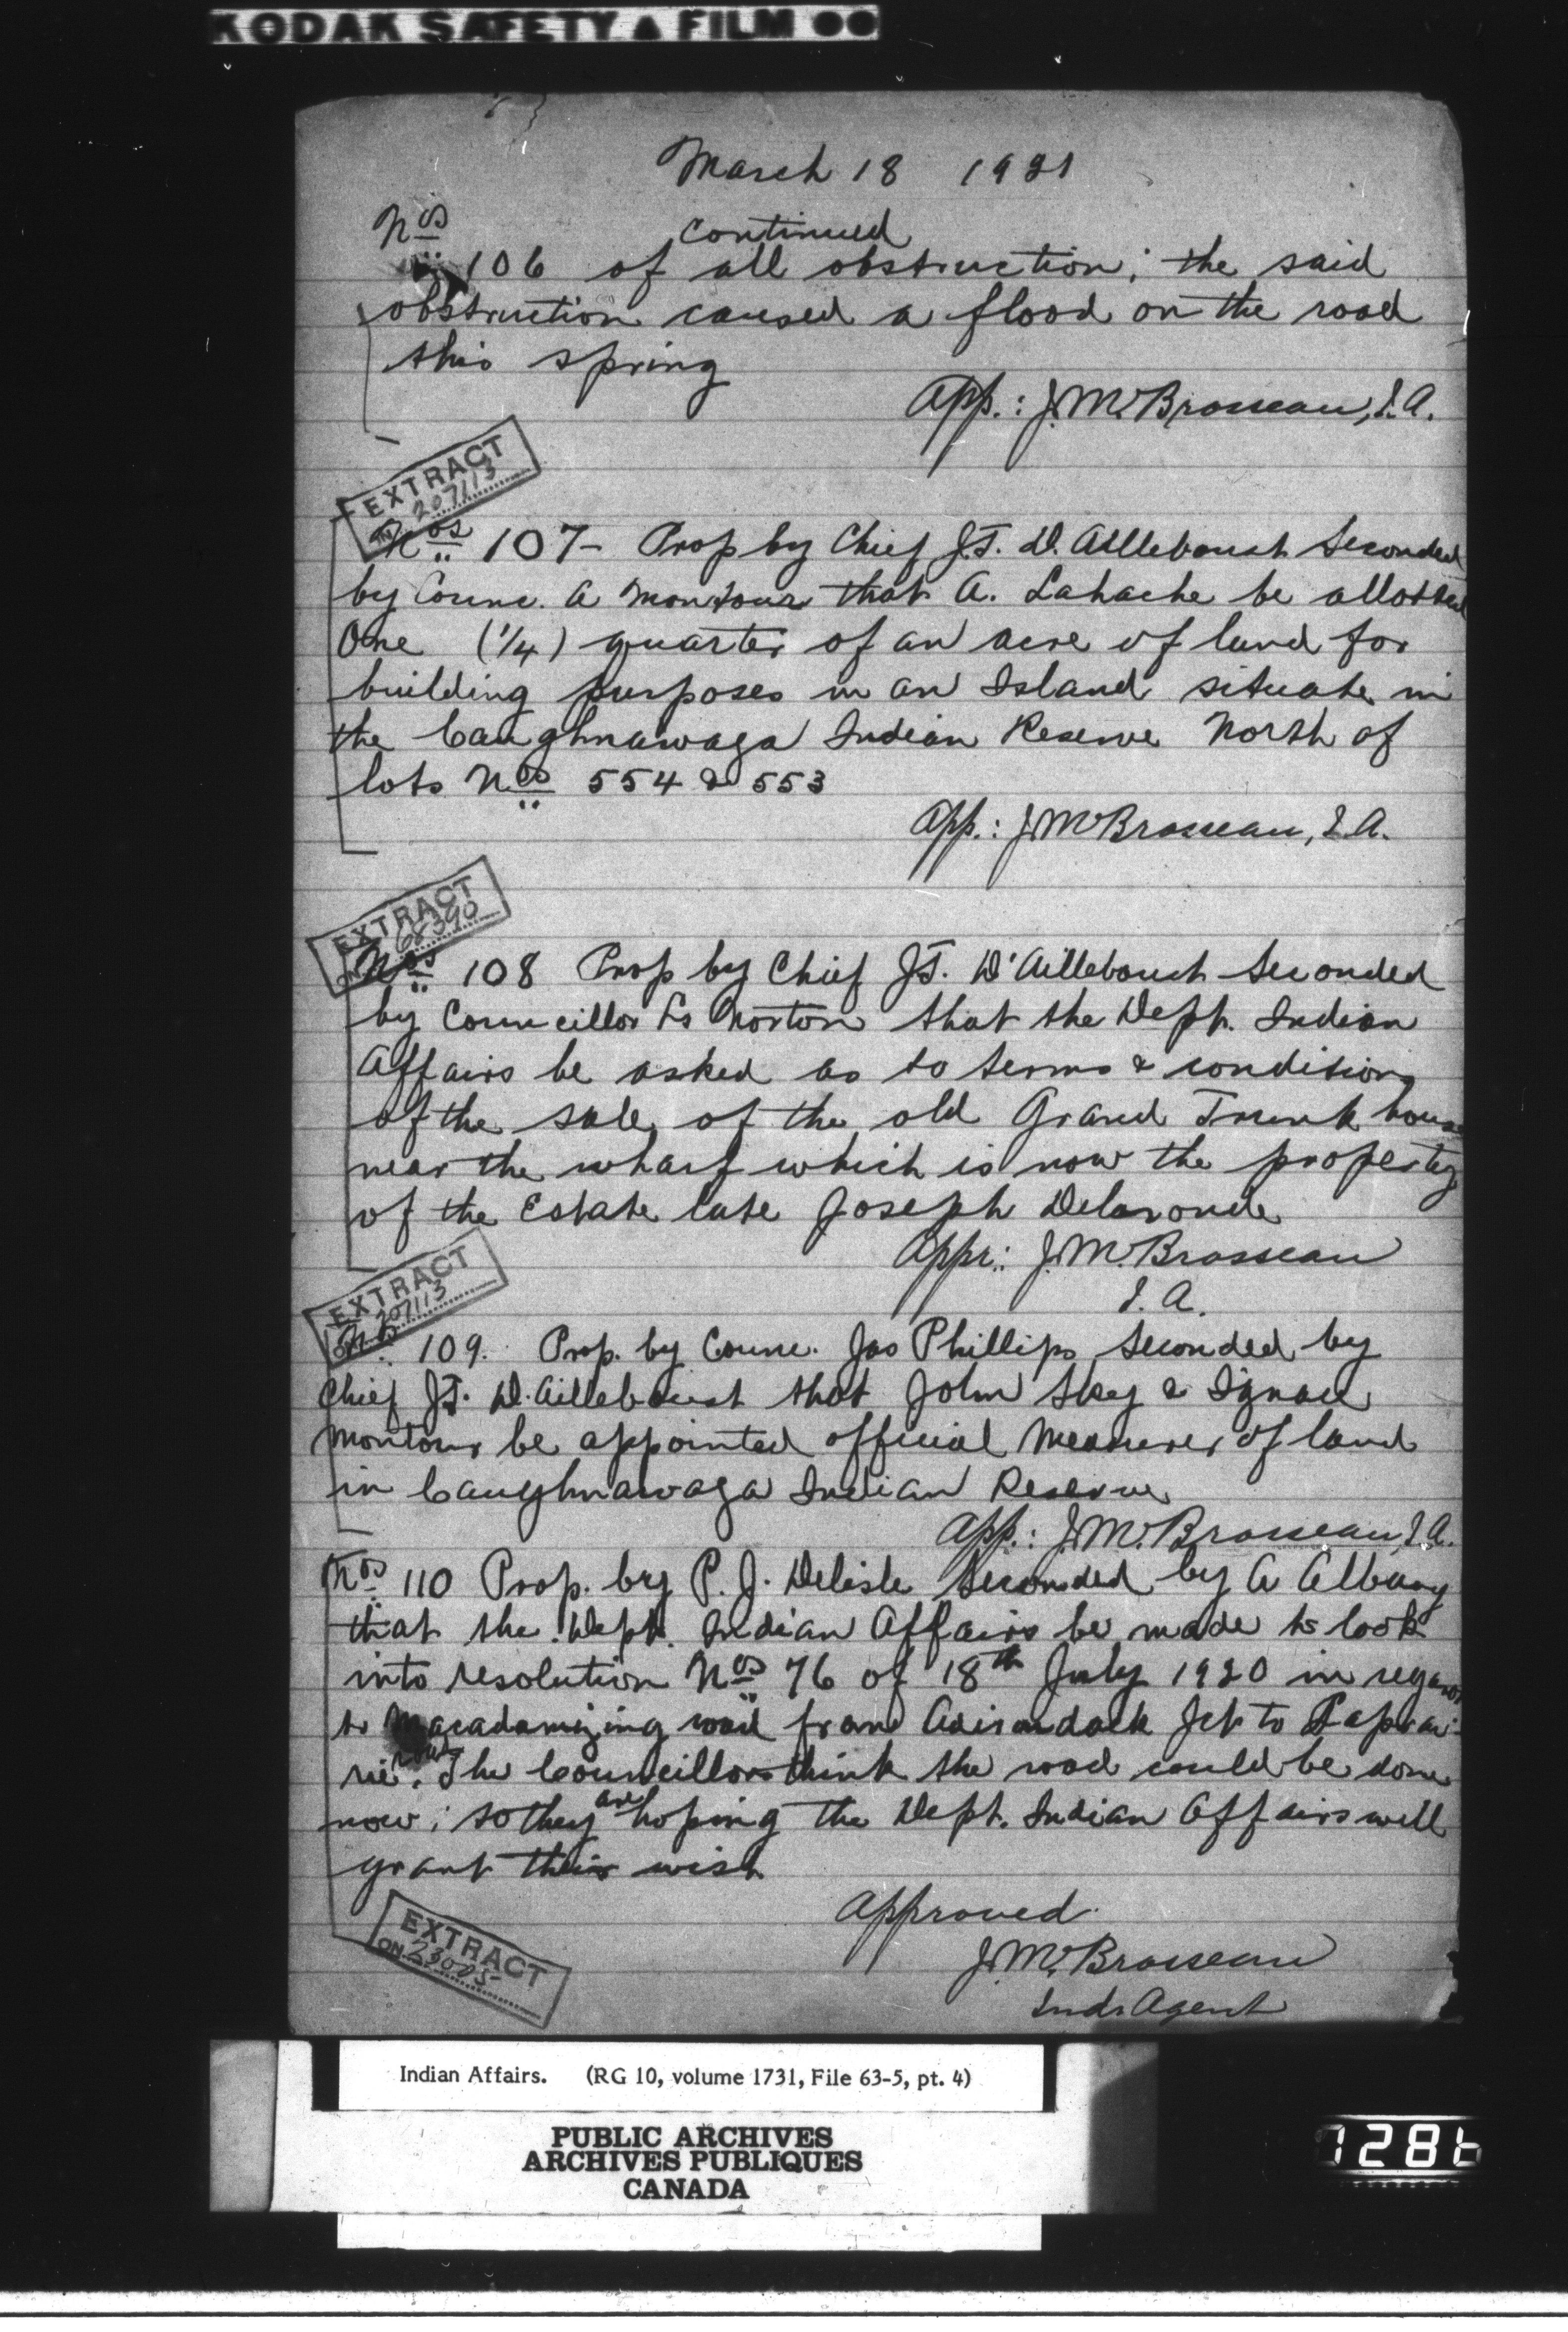 KODAK SAFETY ▲ FILM ●●
March 18 1921
Nos continued
106 of all obstruction; the said
obstruction caused a flood on the road
this spring
App.: J.M. Brosseau, I.A.
EXTRACT
ON 207113
Nos 107- Prop by Chief J.T. D. Ailleboust Seconded
by Counc. A Montour that A. Lahache be allotted
One (1/4) quarter of an acre of land for
building purposes in an Island situate in
the Caughnawaga Indian Reserve North of
lots Nos 554 & 553
App.: J.M. Brosseau, I.A.
EXTRACT
ON 68390
Nos 108 Prop by Chief J.T. D'Ailleboust Seconded
by Councillor Ls Norton that the Dept. Indian
Affairs be asked as to terms & conditions
of the sale of the old Grand Trunk house
near the wharf which is now the property
of the Estate late Joseph Delaronde
Appr.: J.M. Brosseau
I.A.
EXTRACT
ON 207113
109. Prop. by Counc. Jas Phillips Seconded by
Chief J.T. D. Ailleboust that John Skey & Ignace
Montour be appointed official Measurer of land
in Caughnawaga Indian Reserve
App.: J.M. Brosseau, I.A.
Nos 110 Prop. by P. J. Delisle Seconded by A Albany
that the Dept. Indian Affairs be made to look
into resolution Nos 76 of 18th July 1920 in regards
to Macadamizing road from Adirondack Jct to Laprai-
rie road. The Councillors think the road could be done
now; so they are hoping the Dept. Indian Affairs will
grant their wish
Approved
J.M. Brosseau
Ind. Agent
EXTRACT
ON 23025
Indian Affairs. (RG 10, volume 1731, File 63-5, pt. 4)
PUBLIC ARCHIVES
ARCHIVES PUBLIQUES
CANADA